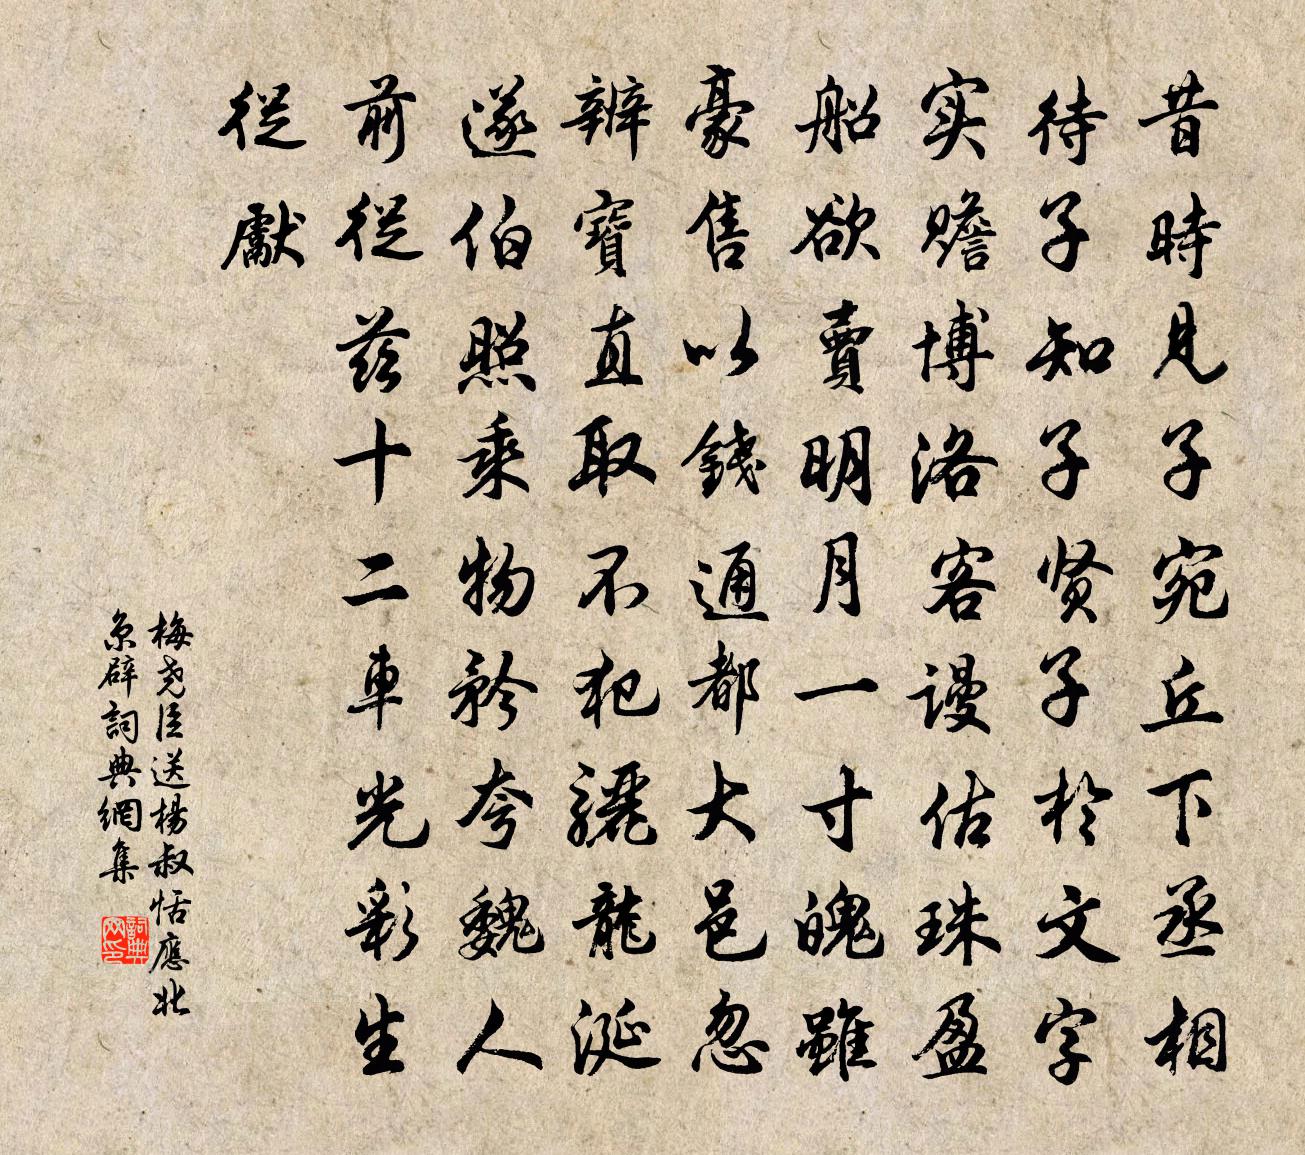 昔時見子宛丘下丞相
待子知子賢子於文字
实贍博洛客謾估珠盈
船欲賣明月一寸魄雖
豪售以錢通都大邑忽
辨寶直取不犯驪龍涎
遂伯照乘物矜夸魏人
前從茲十二車光彩生
從獻
梅尧臣送楊叔恬應北
京辟詞典網集
詞典